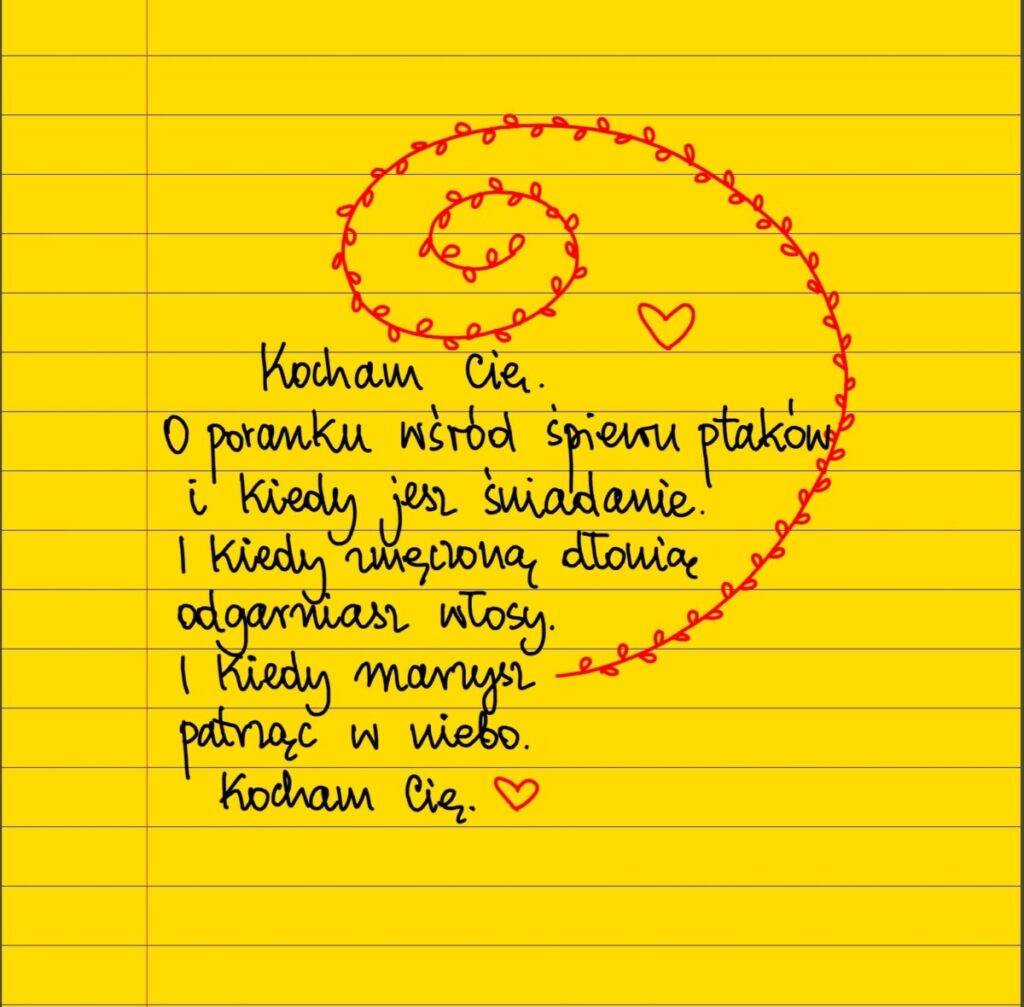 Kocham Cię.
O poranku wśród śpiewu ptaków
i kiedy jesz śniadanie.
I kiedy zmęczoną dłonią
odgarniasz włosy.
I kiedy marzysz
patrząc w niebo.
Kocham Cię.